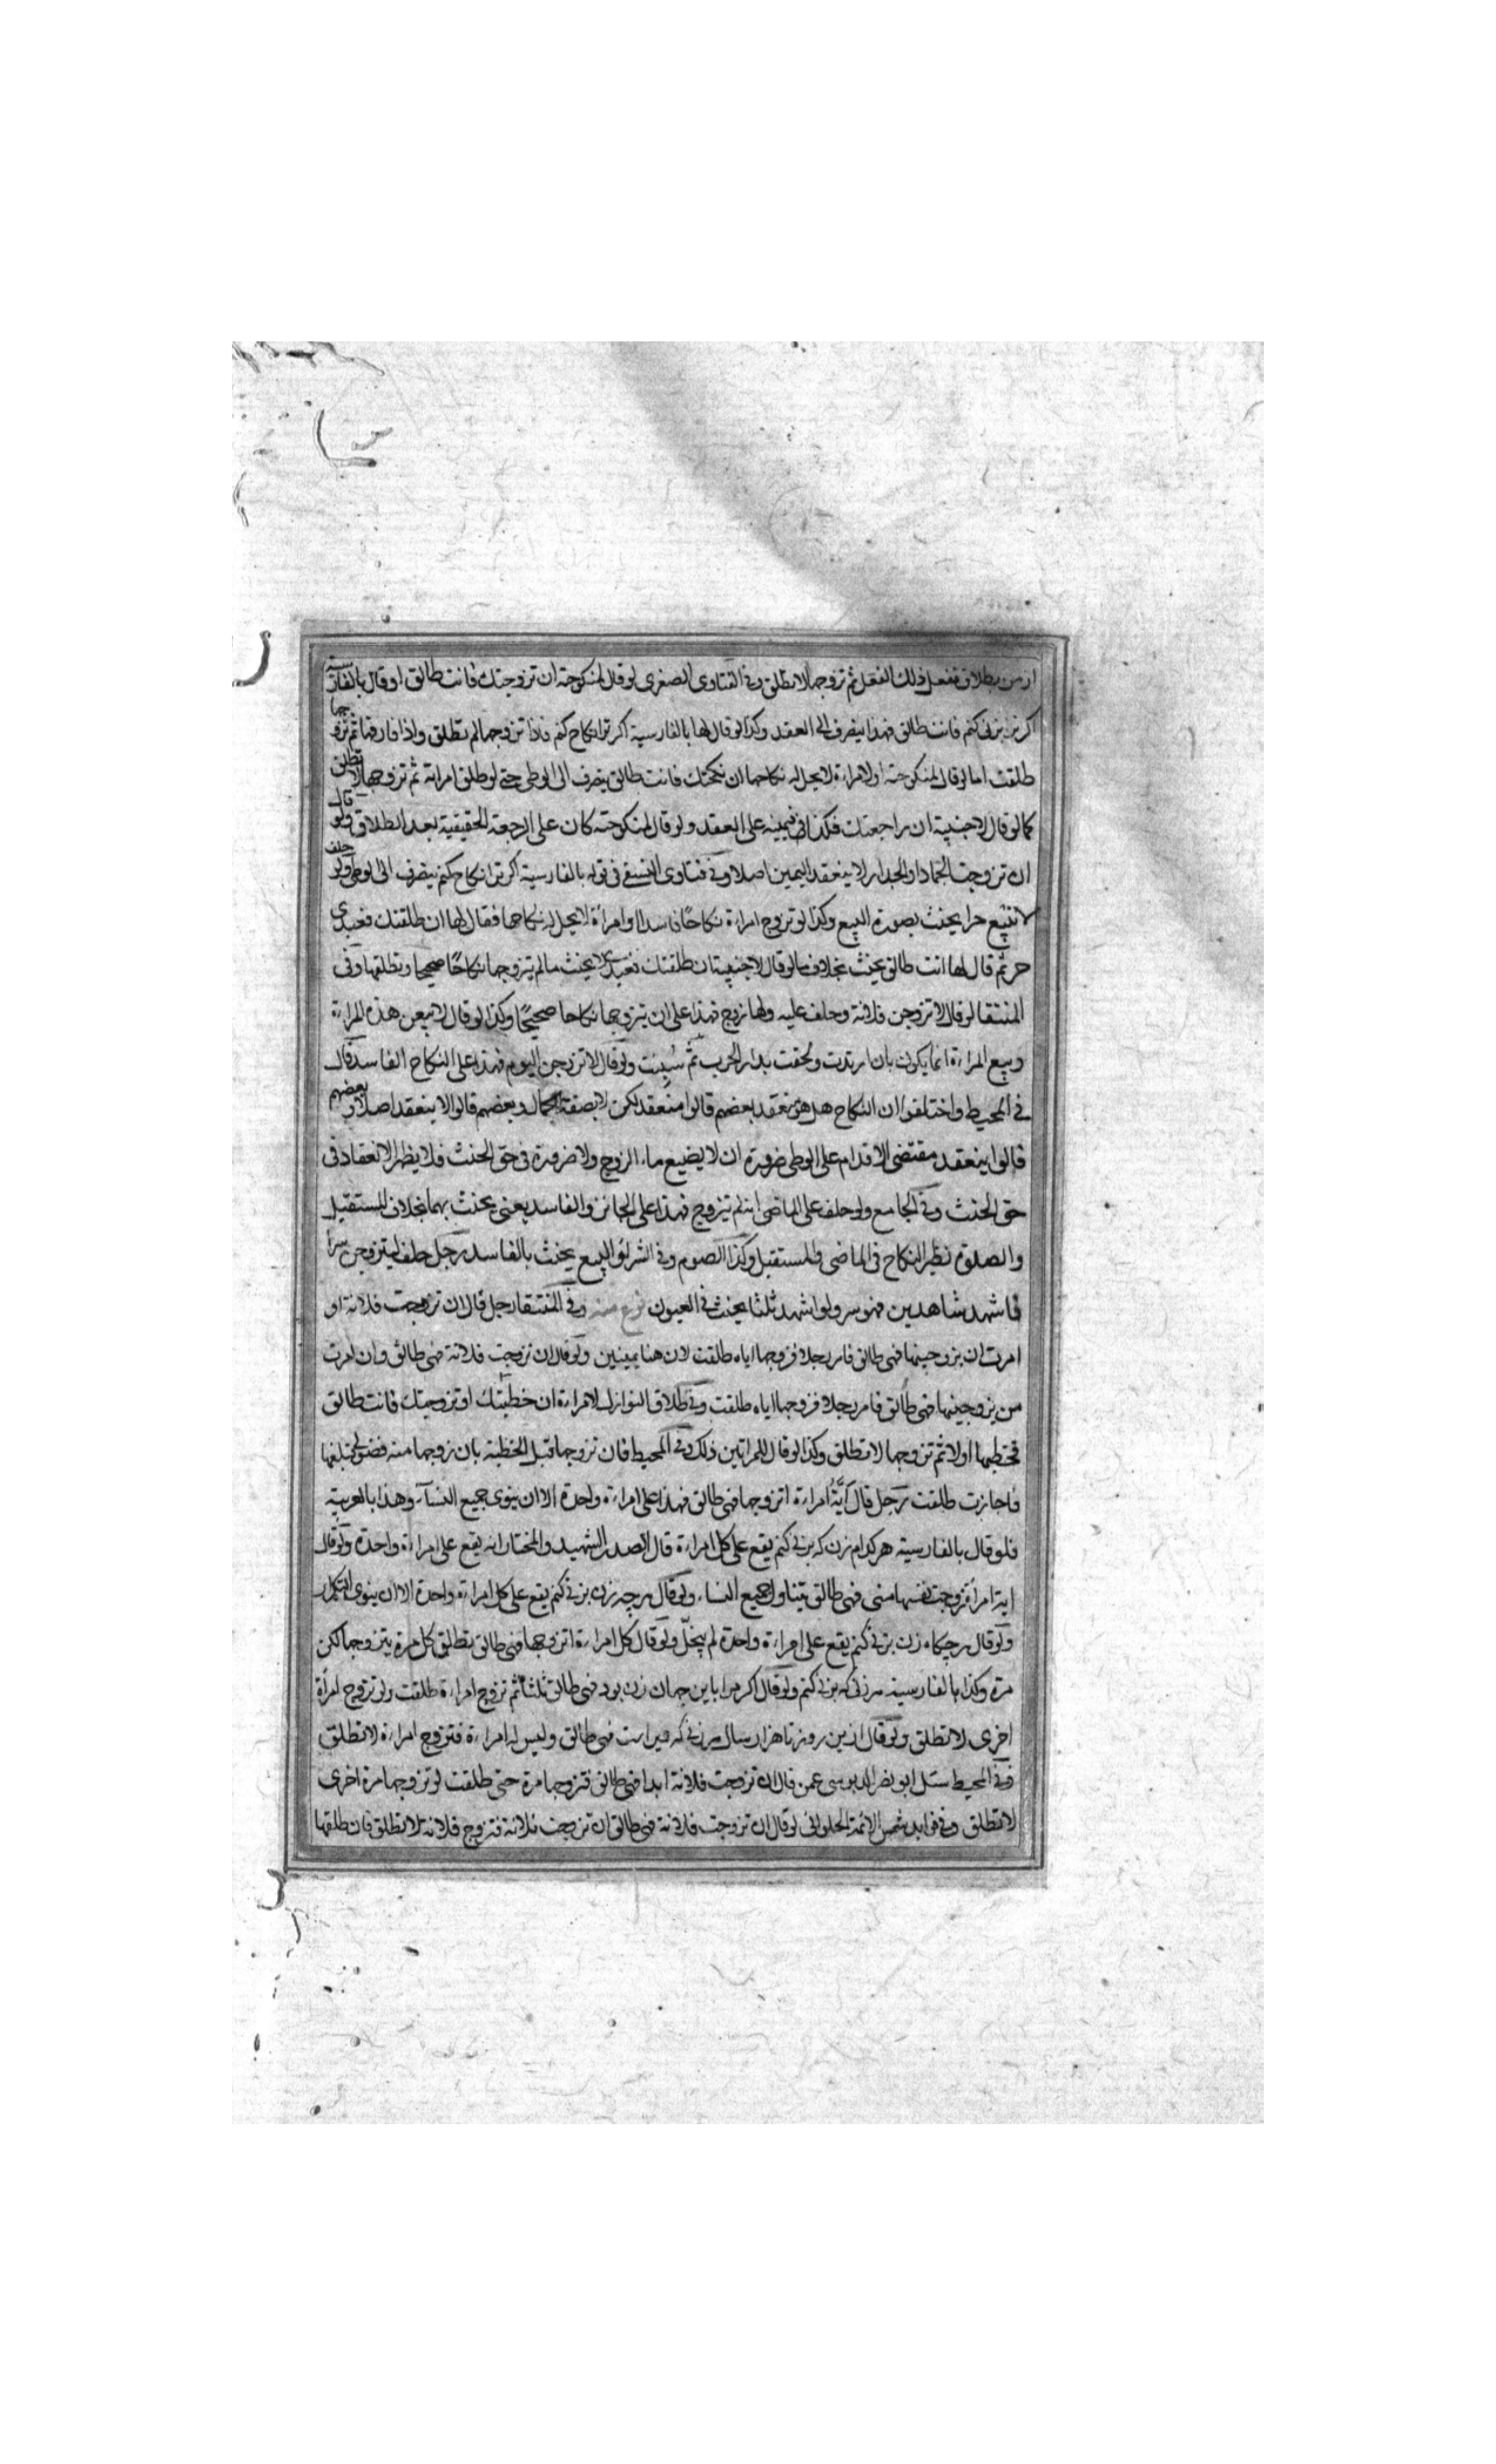 از من بطلاق ففعل ذلك الفعل ثم تزوجها لا تطلق وفي الفتاوى الصغرى لو قال لمنكوحته ان تزوجتك فانت طالق او قال بالفارسية
اكر ترا بزنى كنم فانت طالق فهذا ينصرف الى العقد وكذا لو قال لها بالفارسية اكر ترا نكاح كنم فاذا تزوجها لم تطلق واذا فارقها ثم تزوجها
طلقت اما لو قال لمنكوحته او لامراءة لا يحل له نكاحها ان نكحتك فانت طالق ينصرف الى الوطى حتى لو طلق امراته ثم تزوجها لا تطلق
كما لو قال لاجنبية ان راجعتك فكذا فيمينه على العقد ولو قال لمنكوحته كان على الرجعة الحقيقية بعد الطلاق ولو قال
ان تزوجت الجماد او الجدار لا ينعقد اليمين اصلا وفي فتاوى النسفي في قوله بالفارسية اكر ترا نكاح كنم ينصرف الى الوطى ولو حلف
لا تبيع حرا يحنث بصورة البيع وكذا لو تزوج امراءة نكاحًا فاسدا او امراءة لا يحل له نكاحها فقال لها ان طلقتك فعبدى
حر ثم قال لها انت طالق يحنث بخلاف ما لو قال لاجنبية ان طلقتك فعبدى لا يحنث ما لم يتزوجها نكاحًا صحيحا وتطلقها وفي
المنتقا لو قال لا تزوجن فلانة وحلف عليه ولها زوج فهذا على ان يتزوجها نكاحا صحيحًا وكذا لو قال لا بيعن هذه المراءة
وبيع المراءة انما يكون بان ارتدت ولحقت بدار الحرب ثم سُبيَت ولو قال لا تزوجن اليوم فهذا على النكاح الفاسد قال
في المحيط واختلفوا ان النكاح هل هو منعقد بعضهم قالوا منعقد لكن لا بصفة الجمال وبعضهم قالوا لا ينعقد اصلا وبعضهم
قالوا ينعقد مقتضى الاقدام على الوطى ضرورة ان لا يضيع ماء الزوج ولا ضرورة في حق الحنث فلا يظهر الانعقاد في
حق الحنث وفي الجامع ولو حلف على الماضى انه لم يتزوج فهذا على الجائز والفاسد يعنى يحنث بهما بخلاف المستقبل
والصلوة نظير النكاح في الماضى والمستقبل وكذا الصوم وفي الشرا والبيع يحنث بالفاسد رجل حلف ليتزوجن سرا
فاشهد شاهدين فهو سر ولو اشهد ثلثا يحنث في العيون نوع منه وفي المنتقا رجل قال ان تزوجت فلانة او
امرت ان يزوجينها فهى طالق فامر رجلا فزوجها اياه طلقت لان هنا يمينين ولو قال ان تزوجت فلانة فهى طالق وان امرت
من يزوجينها فهى طالق فامر رجلا فزوجها اياه طلقت وفي طلاق النوازل لامراءة ان خطبتك او تزوجتك فانت طالق
فخطبها اولا ثم تزوجها لا تطلق وكذا لو قال للمراتين ذلك وفي المحيط فان تزوجها قبل الخطبة بان زوجها منه فضولي فبلغها
فاجازت طلقت رجل قال ايَّةُ امراءة اتزوجها فهى طالق فهذا على امراءة واحدة الا ان ينوى جميع النسآء وهذا بالعربية
فلو قال بالفارسية هر كدام زن كه بزنى كنم يقع على كل امراءة قال الصدر الشهيد والمختار انه يقع على امراءة واحدة ولو قال
اية امراة زوجت نفسها منى فهى طالق يتناول جميع النساء ولو قال هر چه زن بزنى كنم يقع على كل امراءة واحدة الا ان ينوى التكرار
ولو قال هر چكاه زن بزنى كنم يقع على امراءة واحدة لم ينحلّ ولو قال كل امراءة اتزوجها فهى طالق تطلق كل مرة يتزوجها لكن
مرة وكذا بالفارسية هر زنى كه بزنى كنم ولو قال اكر مرا باين جهان زن بود فهى طالق ثلثا ثم تزوج امراءة طلقت ولو تزوج امراة
اخرى لا تطلق ولو قال ازين روز تا هزار سال هر زنى كه ويراست فهى طالق وليس له امراءة فتزوج امراءة لا تطلق
وفي المحيط سئل ابو نصر الدبوسى عمن قال ان تزوجت فلانة ابدا فهى طالق فتزوجها مرة حتى طلقت لو تزوجها مرة اخرى
لا تطلق وفي فوايد شمس الائمة الحلوانى لو قال ان تزوجت فلانة فهى طالق ان تزوجت فلانة فتزوج فلانة لا تطلق فان طلقها